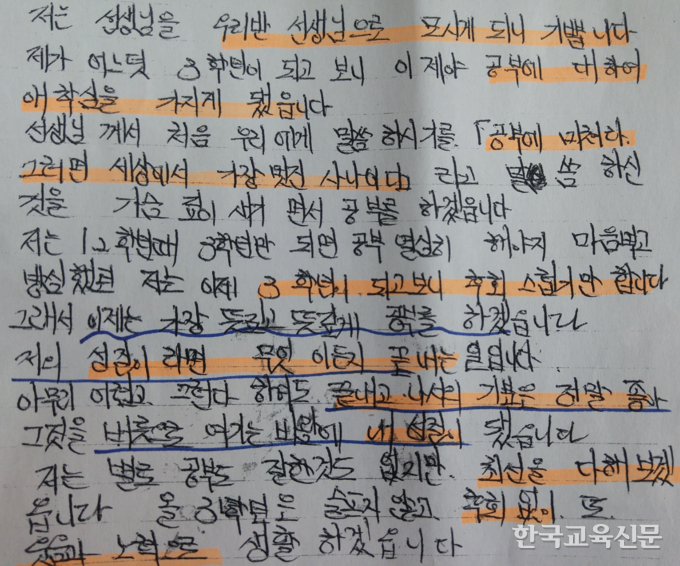 저는 선생님을 우리반 선생님으로 모시게 되니 기쁩니다
제가 어느덧 3학년이 되고 보니 이제야 공부에 대하여
애착심을 가지게 됐읍니다
선생님 께서 처음 우리에게 말씀 하시기를 「공부에 미쳐라.
그러면 세상에서 가장 멋진 사나이다」 라고 씀 하신
것을 가슴 깊이 새기 면서 공부를 하겠읍니다
저는 1.2학년때 3학년만 되면 공부 열심히 해야지 마음먹고
방심했던 저는 이제 3학년이 되고보니 후회 스럽기만 합니다
그래서 이제는 가장 뜻깊게 를 하겠습니다
저의 성격이 라면 무엇 이든지 끝내는 일입니다.
아무리 어렵고 하여도 끝내고 나서의 기분은 정말 좋아
그것을 버릇으로 여기는 바람에 내 성격이 됐습니다
저는 별로 공부도 잘한것도 없지만. 최선을 다해보겠
읍니다 올 3학년은 슬프지 않고 후회 없이. 또
웃음과 노력으로 생활 하겠읍니다
한국교육신문